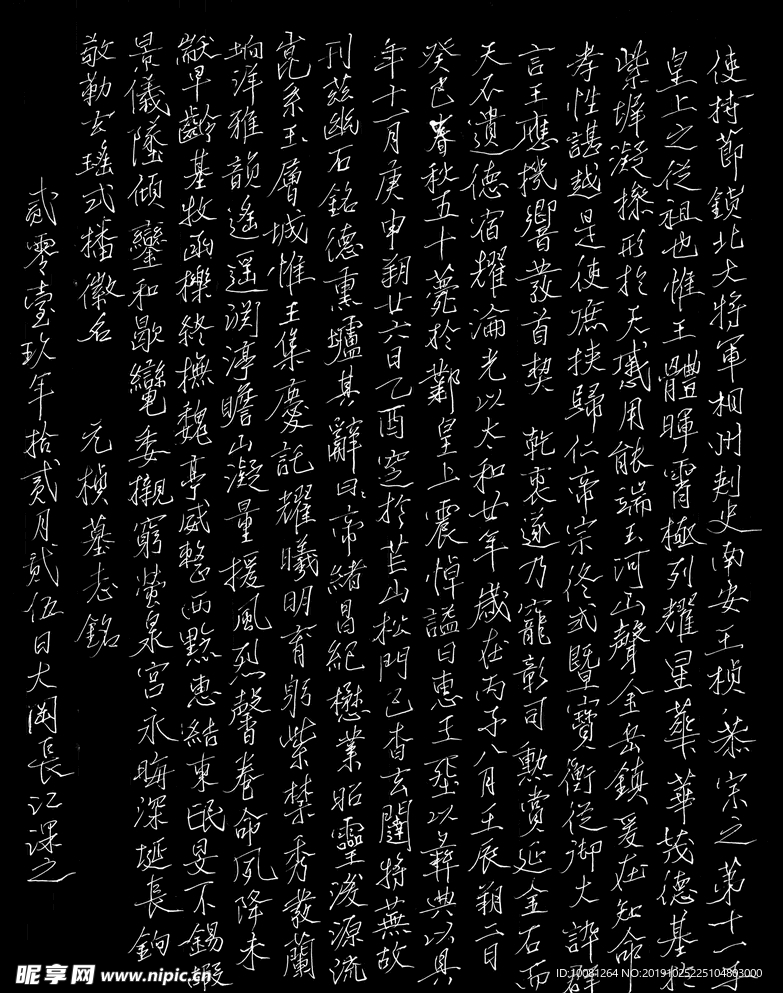 使持節鎮北大将軍相州刺史南安王楨恭宗之第十一子
皇上之従祖也惟王體暉霄極列耀星華茂德基於
紫墀凝操形於天感用能端玉河山聲金岳鎮爰在知命
孝性諶越是使庶族歸仁帝宗攸式暨寶衡従御大誶群
言王應機響發首契乾衷遂乃寵彰司勲賞延金石而
天不遺德宿耀淪光以太和廿年歲在丙子八月壬辰朔二日
癸巳春秋五十薨於鄴皇上震悼諡曰惠王𦵏以彝典以其
年十一月庚申朔廿六日乙酉窆於芒山松門已杳玄闥将蕪故
刊茲幽石銘德熏壚其辭曰帝緒昌紀懋業昭靈浚源流
崑系玉層城惟王集慶託耀曦明育躬紫禁秀發蘭
坰洋洋雅韻遙遙淵渟瞻山凝量援風烈馨卷命夙降未
猷早齡基牧函櫟終撫魏亭威整西黠惠結東氓旻不錫嘏
景儀墜傾鑾和歇轡委櫬窮塋泉宮永晦深埏長鉤
敬勒玄瑤式播徽名 元楨墓志銘
贰零壹玖年拾贰月贰伍日大闲長江課之
昵享网 www.nipic.cn
ID:10081264 NO:20191025225104803000